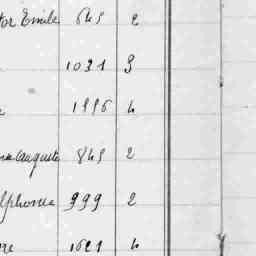 tor Emile 645 2
1031 3
1996 4
Auguste 849 2
lphonse 999 2
1621 4